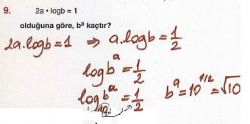 9. 2a • logb = 1
olduğuna göre, bᵃ kaçtır?
2a.logb=1 ⇒ a.logb=1/2
logbᵃ=1/2
logbᵃ=1/2 bᵃ=10^1/2=√10